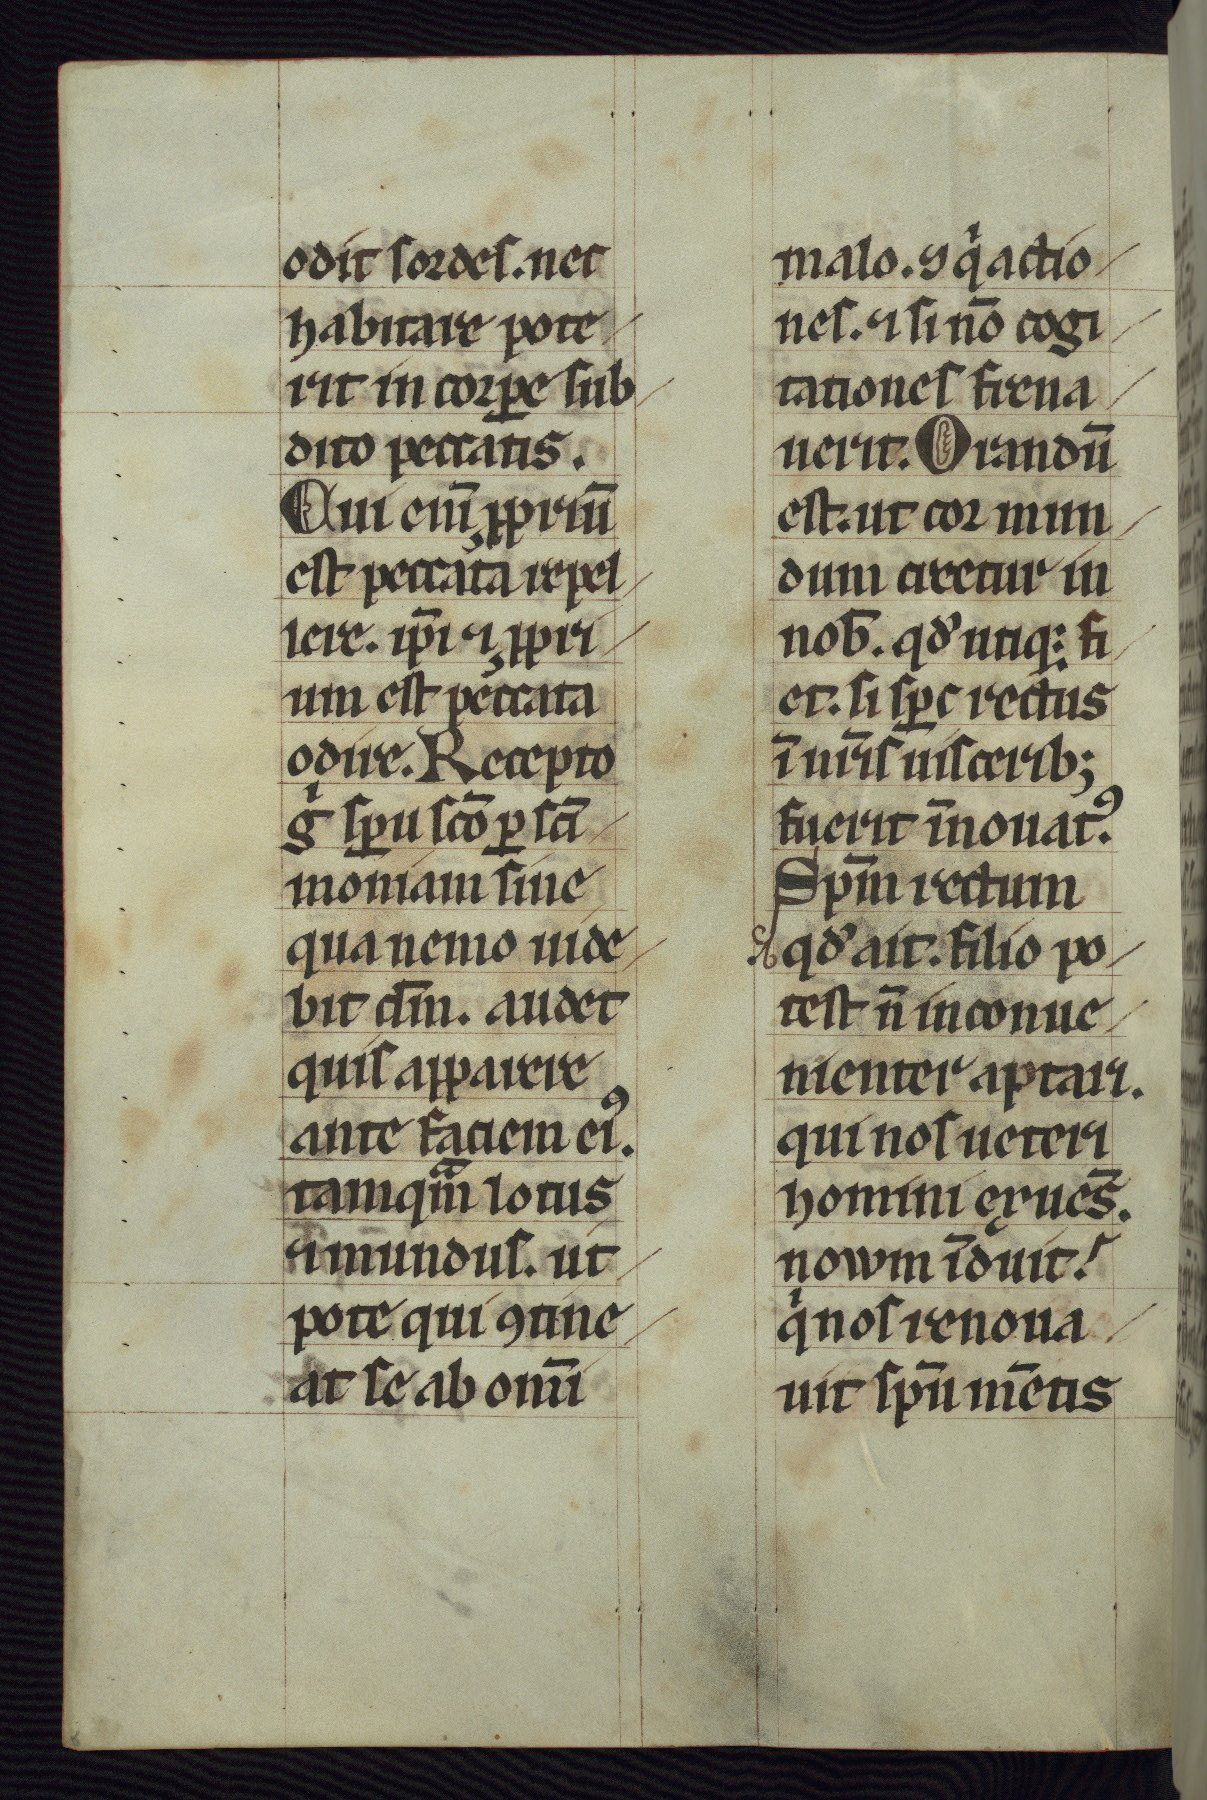 odit sordes. nec
habitare pote
rit in corꝑe sub
dito peccatis.
Qui eni̅ ꝓpriu̅
est peccata repel
lere. ip̅i ⁊ ꝓpri
um est peccata
odire. Recepto
gͥ sp̲u sc̅o ꝑ sc̅i
moniam sine
qua nemo uide
bit dm̅. audet
quis apparere
ante faciem eiꝰ.
tamqͣm lotus
⁊ mundus. ut
pote qui ꝯtine
at se ab omi̅
malo. ꝯ qͥ actio
nes. ⁊ si no̅ cogi
tationes frena
uerit. Orandu̅
est. ut cor mun
dum creetur in
nob̅. qd’ utiqꝫ fi
et. si sp̲c rectus
i̅ nr̅is uisceribꝫ
fuerit i̅nouatꝰ.
Spm̅ rectum
qd’ ait. filio po
test n̅ inconue
nienter aptari.
qui nos ueteri
homini exues̅.
nowm i̅duit!
qͥ nos renoua
uit spu̅ me̅tis